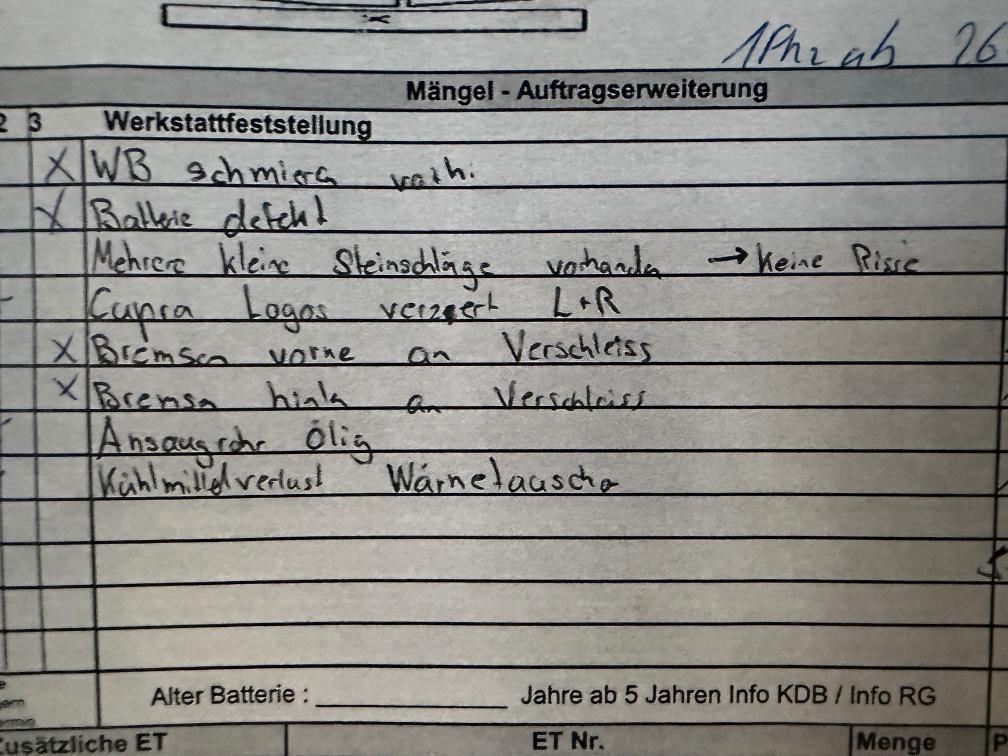 1Phz ab 26
Mängel - Auftragserweiterung
2 3 Werkstattfeststellung
X WB schmiern vorh.
X Batterie defekt
Mehrere kleine Steinschläge vorhanden → keine Risse
Cupra Logos verzerrt L+R
X Bremsen vorne an Verschleiss
X Bremsen hinten an Verschleiss
Ansaugrohr Ölig
Kühlmittelverlust Wärmetauscher
Alter Batterie : Jahre ab 5 Jahren Info KDB / Info RG
Zusätzliche ET ET Nr. Menge